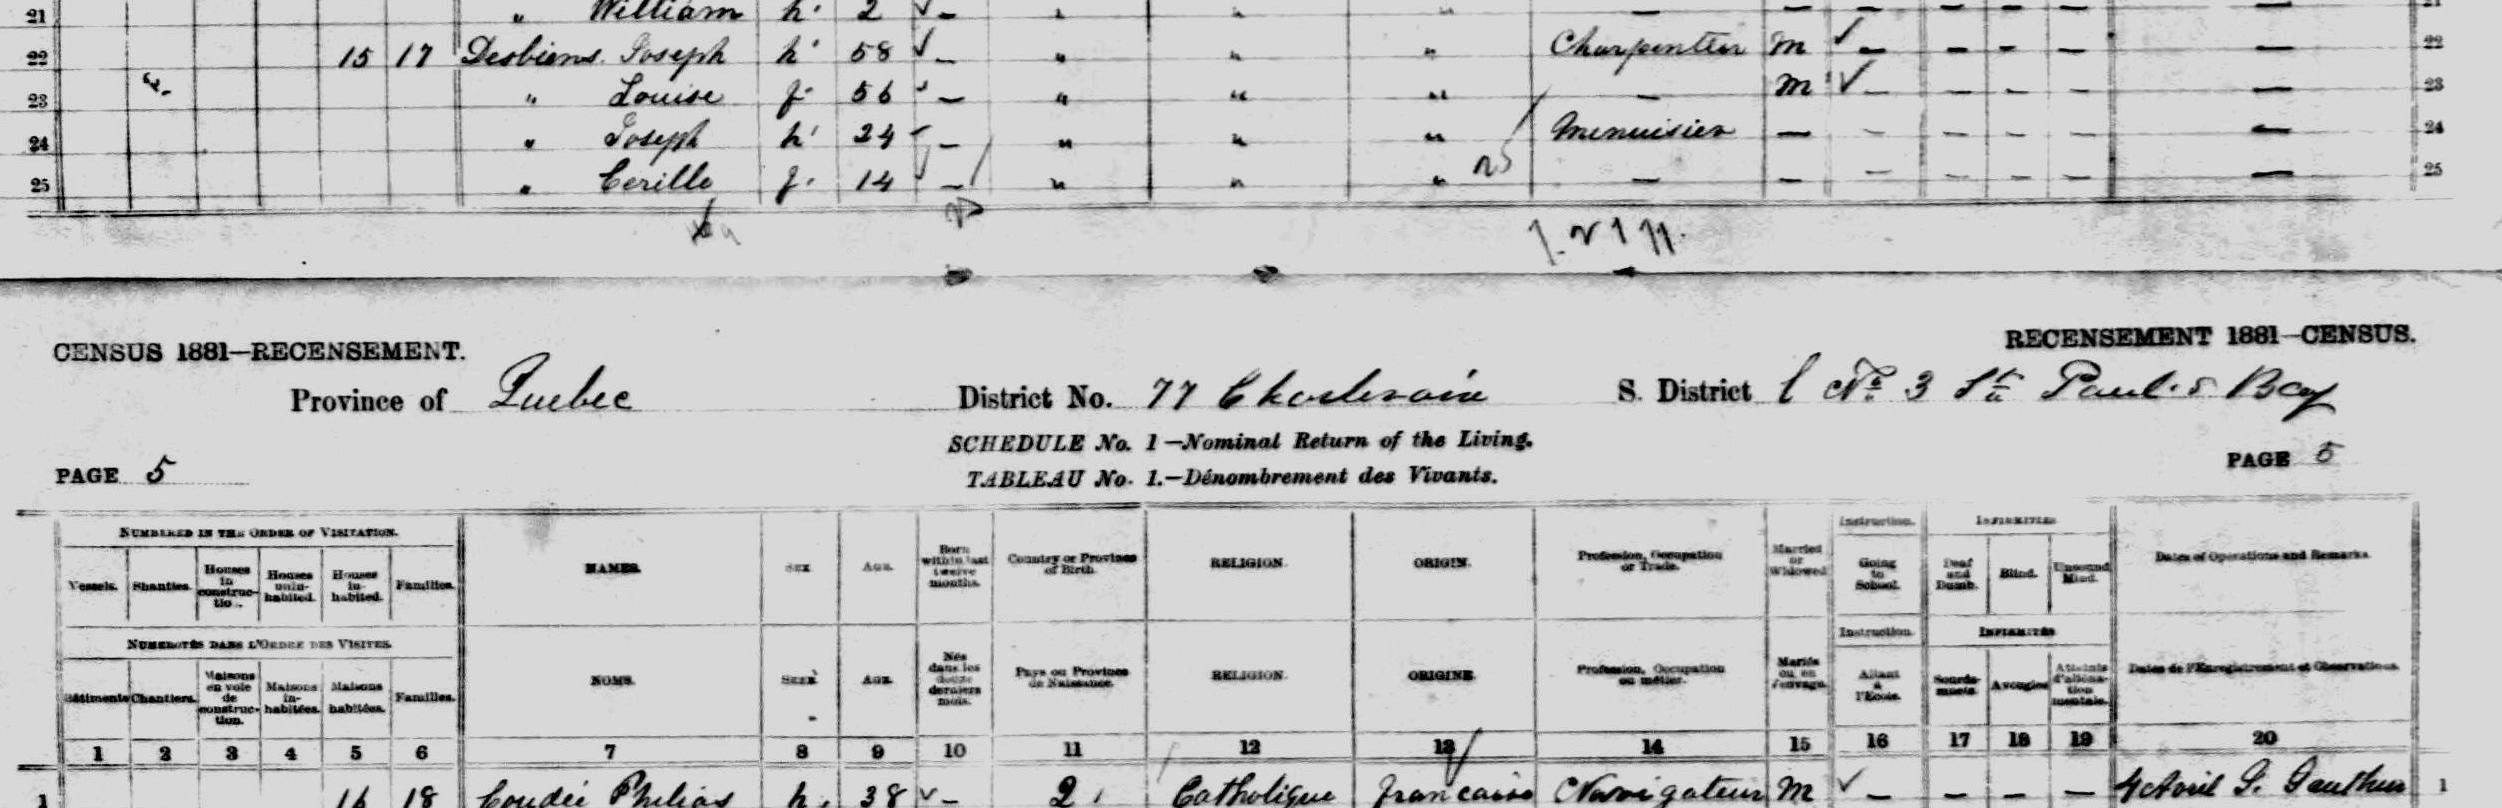 21 " William h. 2 – " " " – – – – – – – 21
22 15 17 Desbiens Joseph h. 58 – " " " Charpentier m – – – – – 22
23 " Louise f. 56 – " " " – m – – – – – 23
24 " Joseph h. 24 – " " " Menuisier – – – – – – 24
25 " Cerille f. 14 – " " " – – – – – – – 25
CENSUS 1881–RECENSEMENT. RECENSEMENT 1881–CENSUS.
Province of Quebec District No. 77 Charlevoix S. District l No. 3 St Paul's Bay
SCHEDULE No. 1–Nominal Return of the Living.
PAGE 5 TABLEAU No. 1.–Dénombrement des Vivants. PAGE 5
NUMBERED IN THE ORDER OF VISITATION. Instruction. INFIRMITIES
Vessels. Shanties. Houses in construction. Houses uninhabited. Houses inhabited. Families. NAMES. SEX AGE. Born within last twelve months. Country or Province of Birth. RELIGION. ORIGIN. Profession, Occupation or Trade. Married or Widowed Going to School. Deaf and Dumb. Blind. Unsound Mind. Dates of Operations and Remarks.
NUMEROTÉS DANS L'ORDRE DES VISITES. Instruction. INFIRMITÉS
Bâtiments Chantiers. Maisons en voie de construction. Maisons inhabitées. Maisons habitées. Families. NOMS. SEXE AGE. Nés dans les douze derniers mois. Pays ou Province de Naissance. RELIGION. ORIGINE. Profession, Occupation ou métier. Mariés ou en veuvage. Allant à l'École. Sourds-muets. Aveugles Atteints d'aliénation mentale. Dates de l'Enregistrement et Observations.
1 2 3 4 5 6 7 8 9 10 11 12 13 14 15 16 17 18 19 20
1 16 18 Philias h. 38 – 2 Catholique francaise Navigateur m – – – – 4 Avril 1